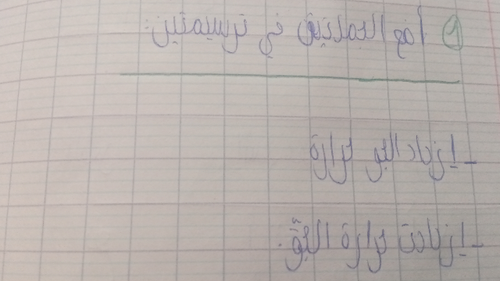 ① أضع الجملتين في ترسيمتين:
- إزداد الجو حرارة
- إزدادت حرارة الجوّ.